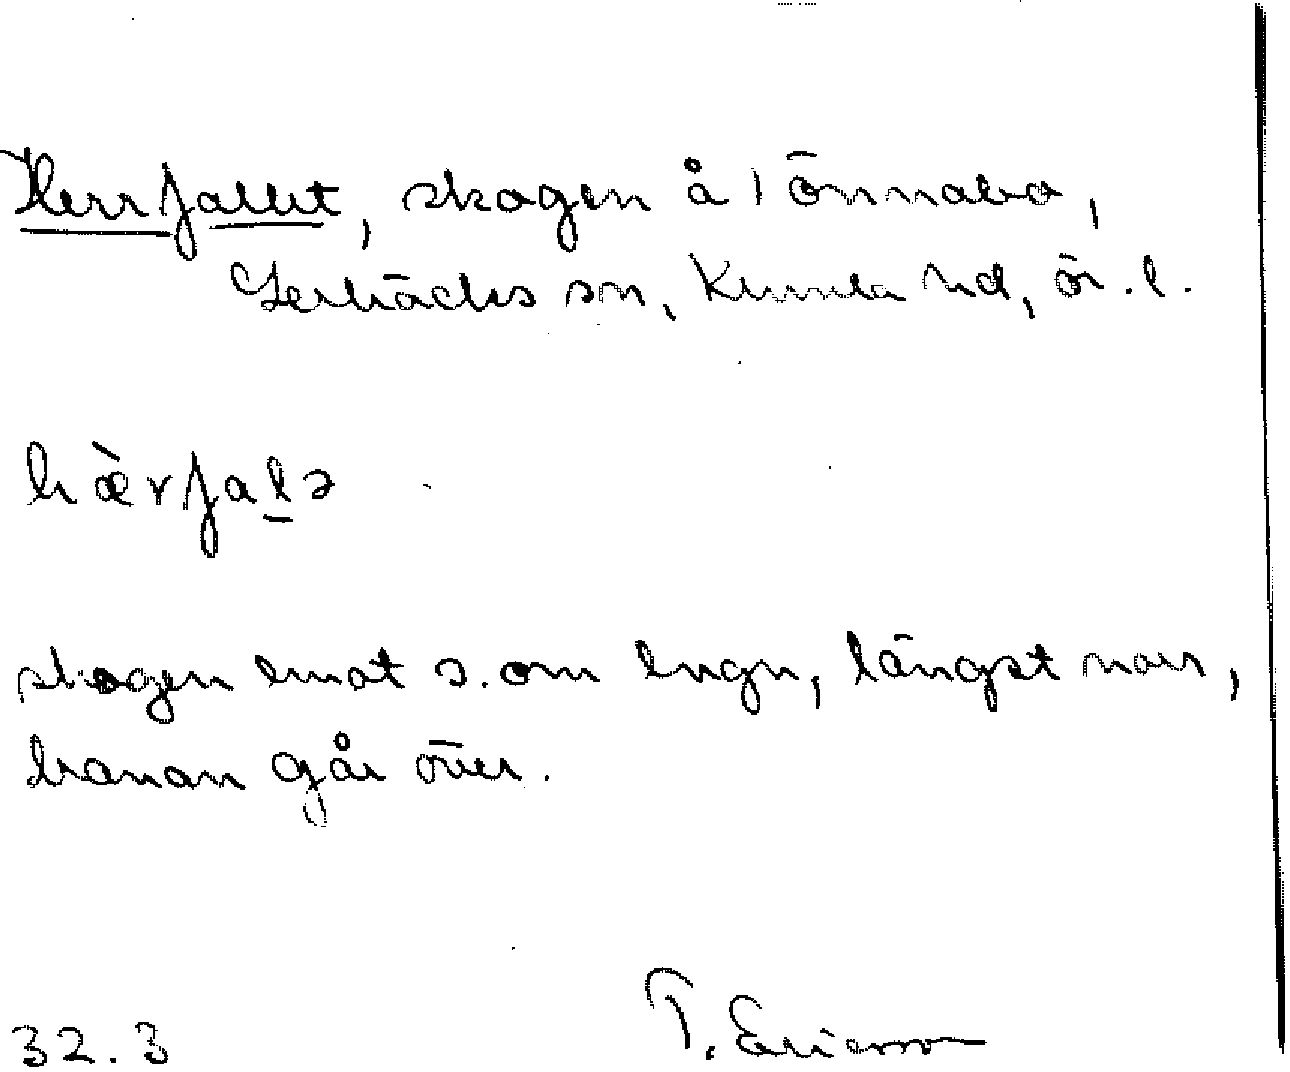 Herrfallet, skogen å Tönnabo,
Lerbäcks sn, Kumla hd, ör. l.
hàrfalə
skogen emot s. om lngn, längst ner,
banan går över.
32.3 T. Ericsson